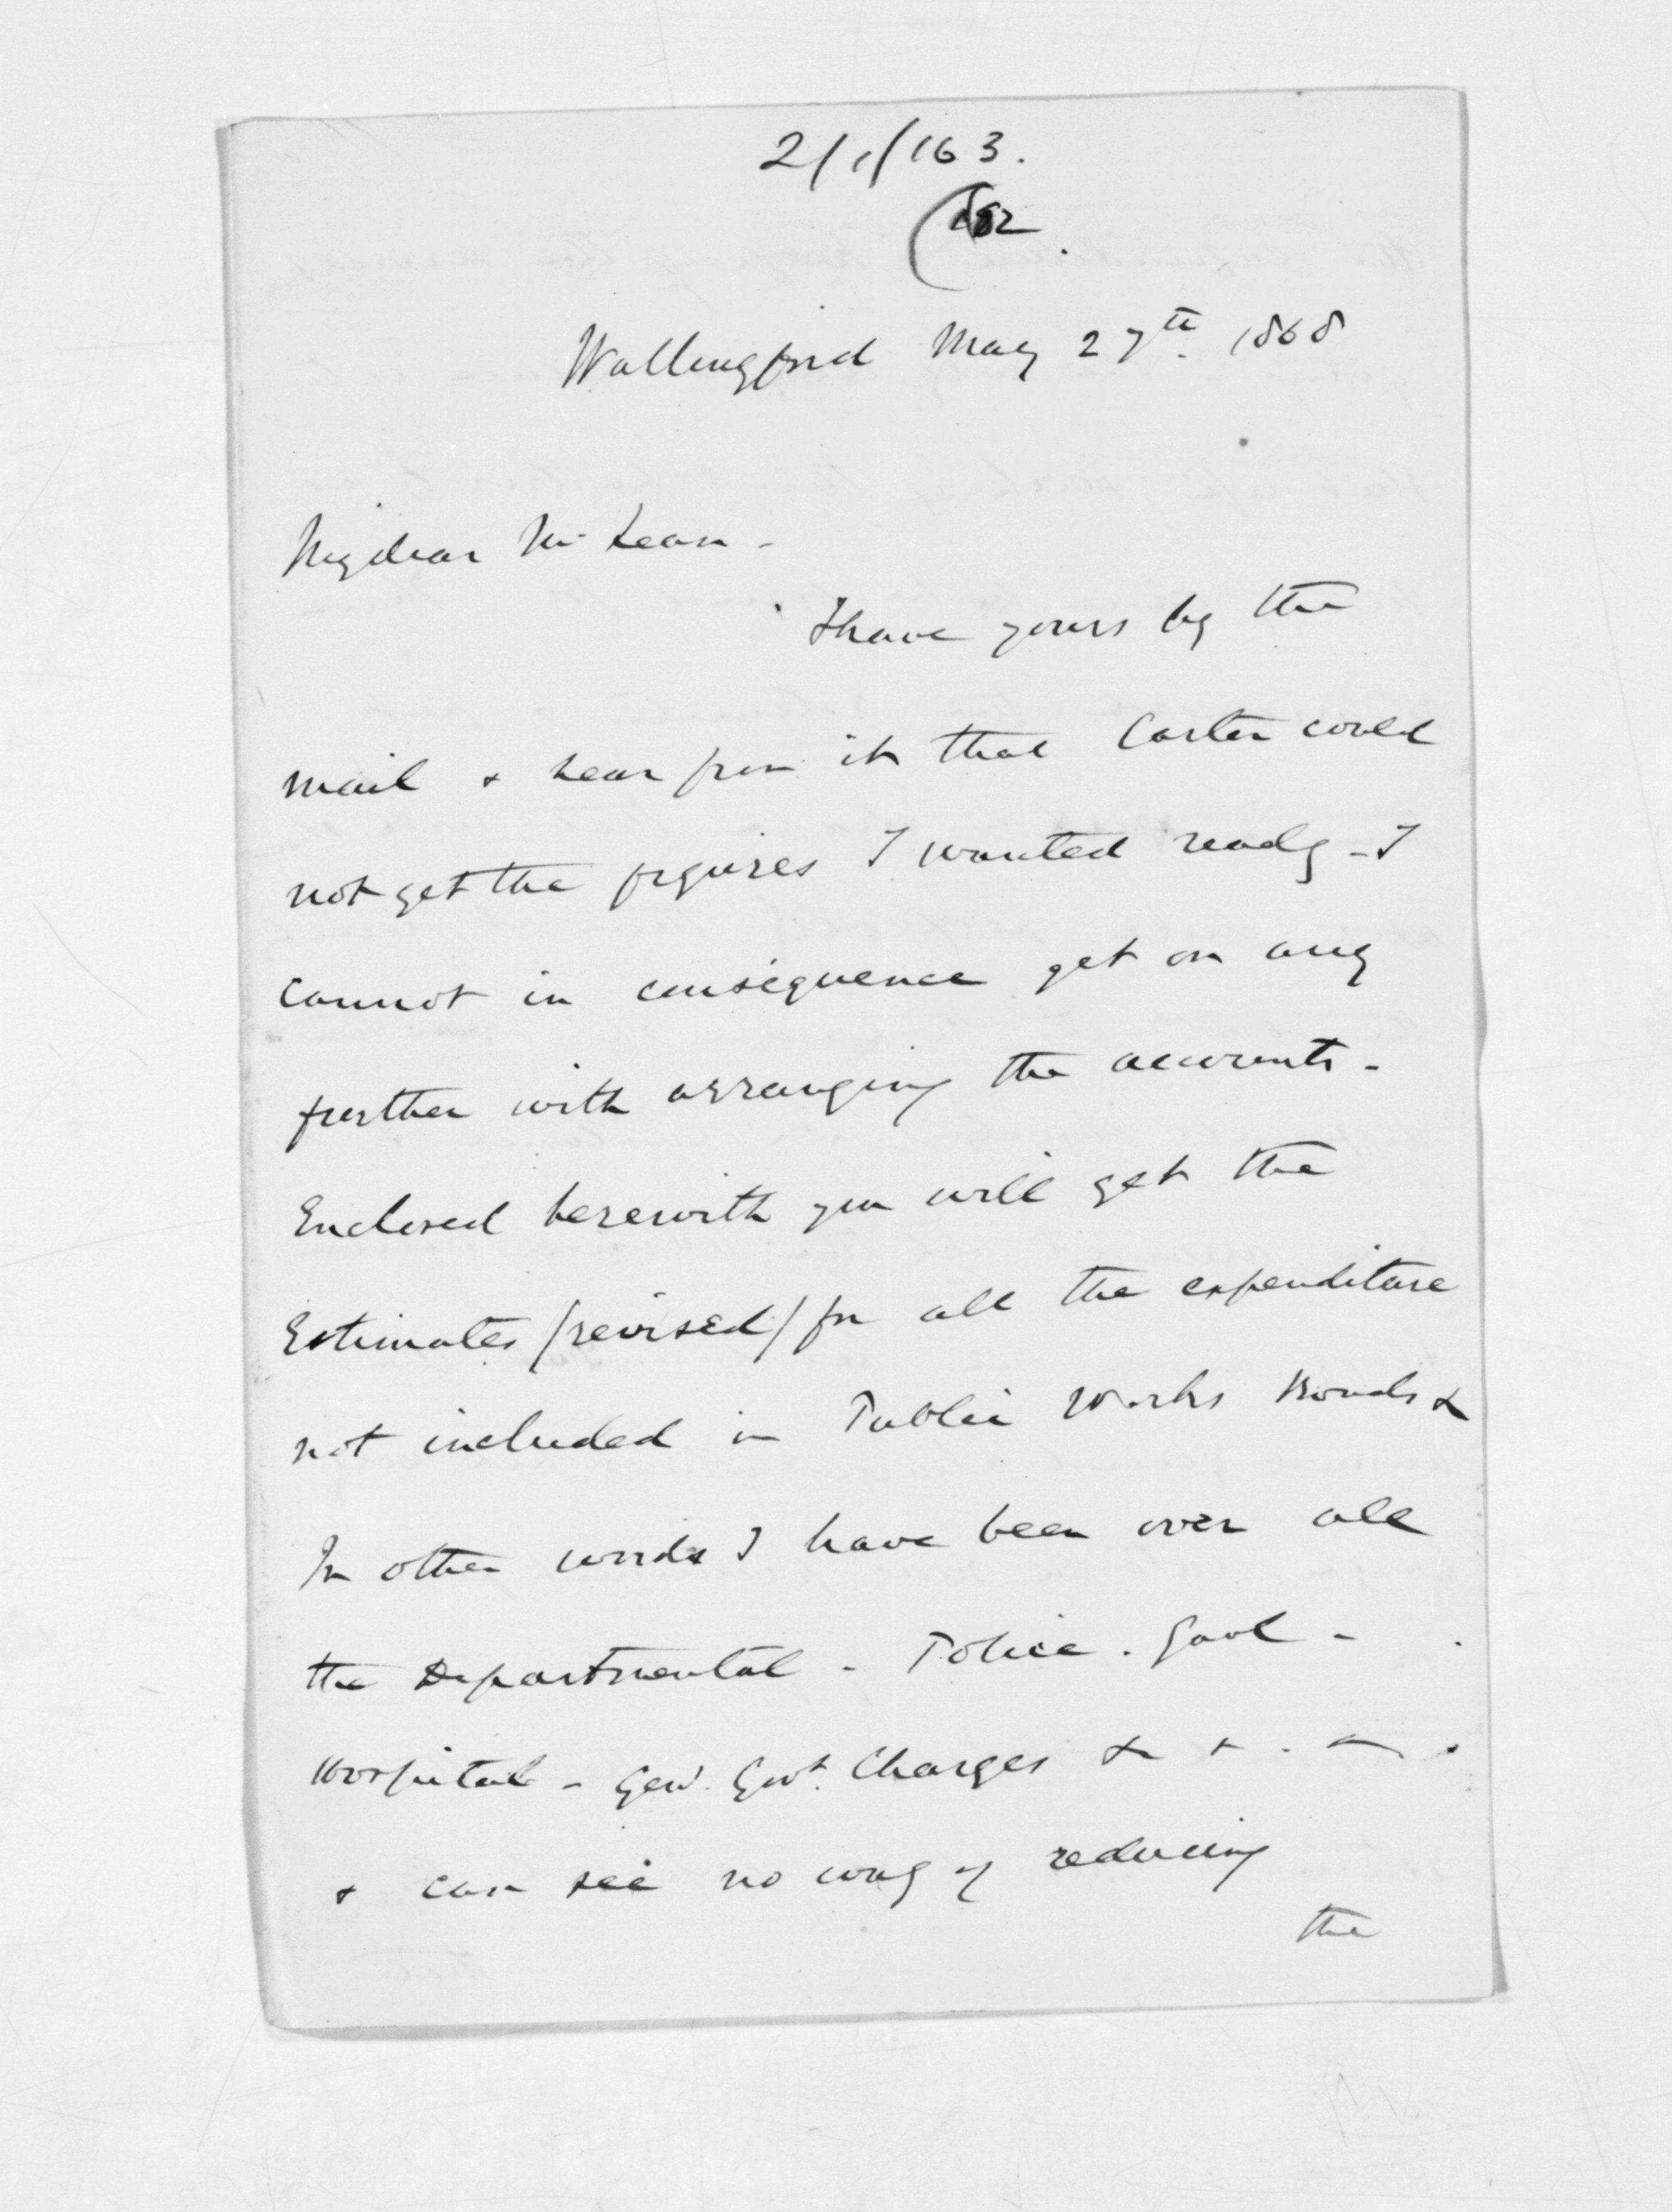 2/1/163.
182
Wallingford May 27th. 1868
My dear McLean -
I have yours by the
mail & hear from it that Carter could
not get the figures I wanted ready - I
cannot in consequence get on any
further with arranging the accounts -
Enclosed herewith you will get the
Estimates /revised/ for all the expenditure
not included in Public Works Bonds &
In other words I have been over all
the Departmental - Police . Gaol -
Hospital - Genl. Govt. Charges & &
& can see no way of reducing
the